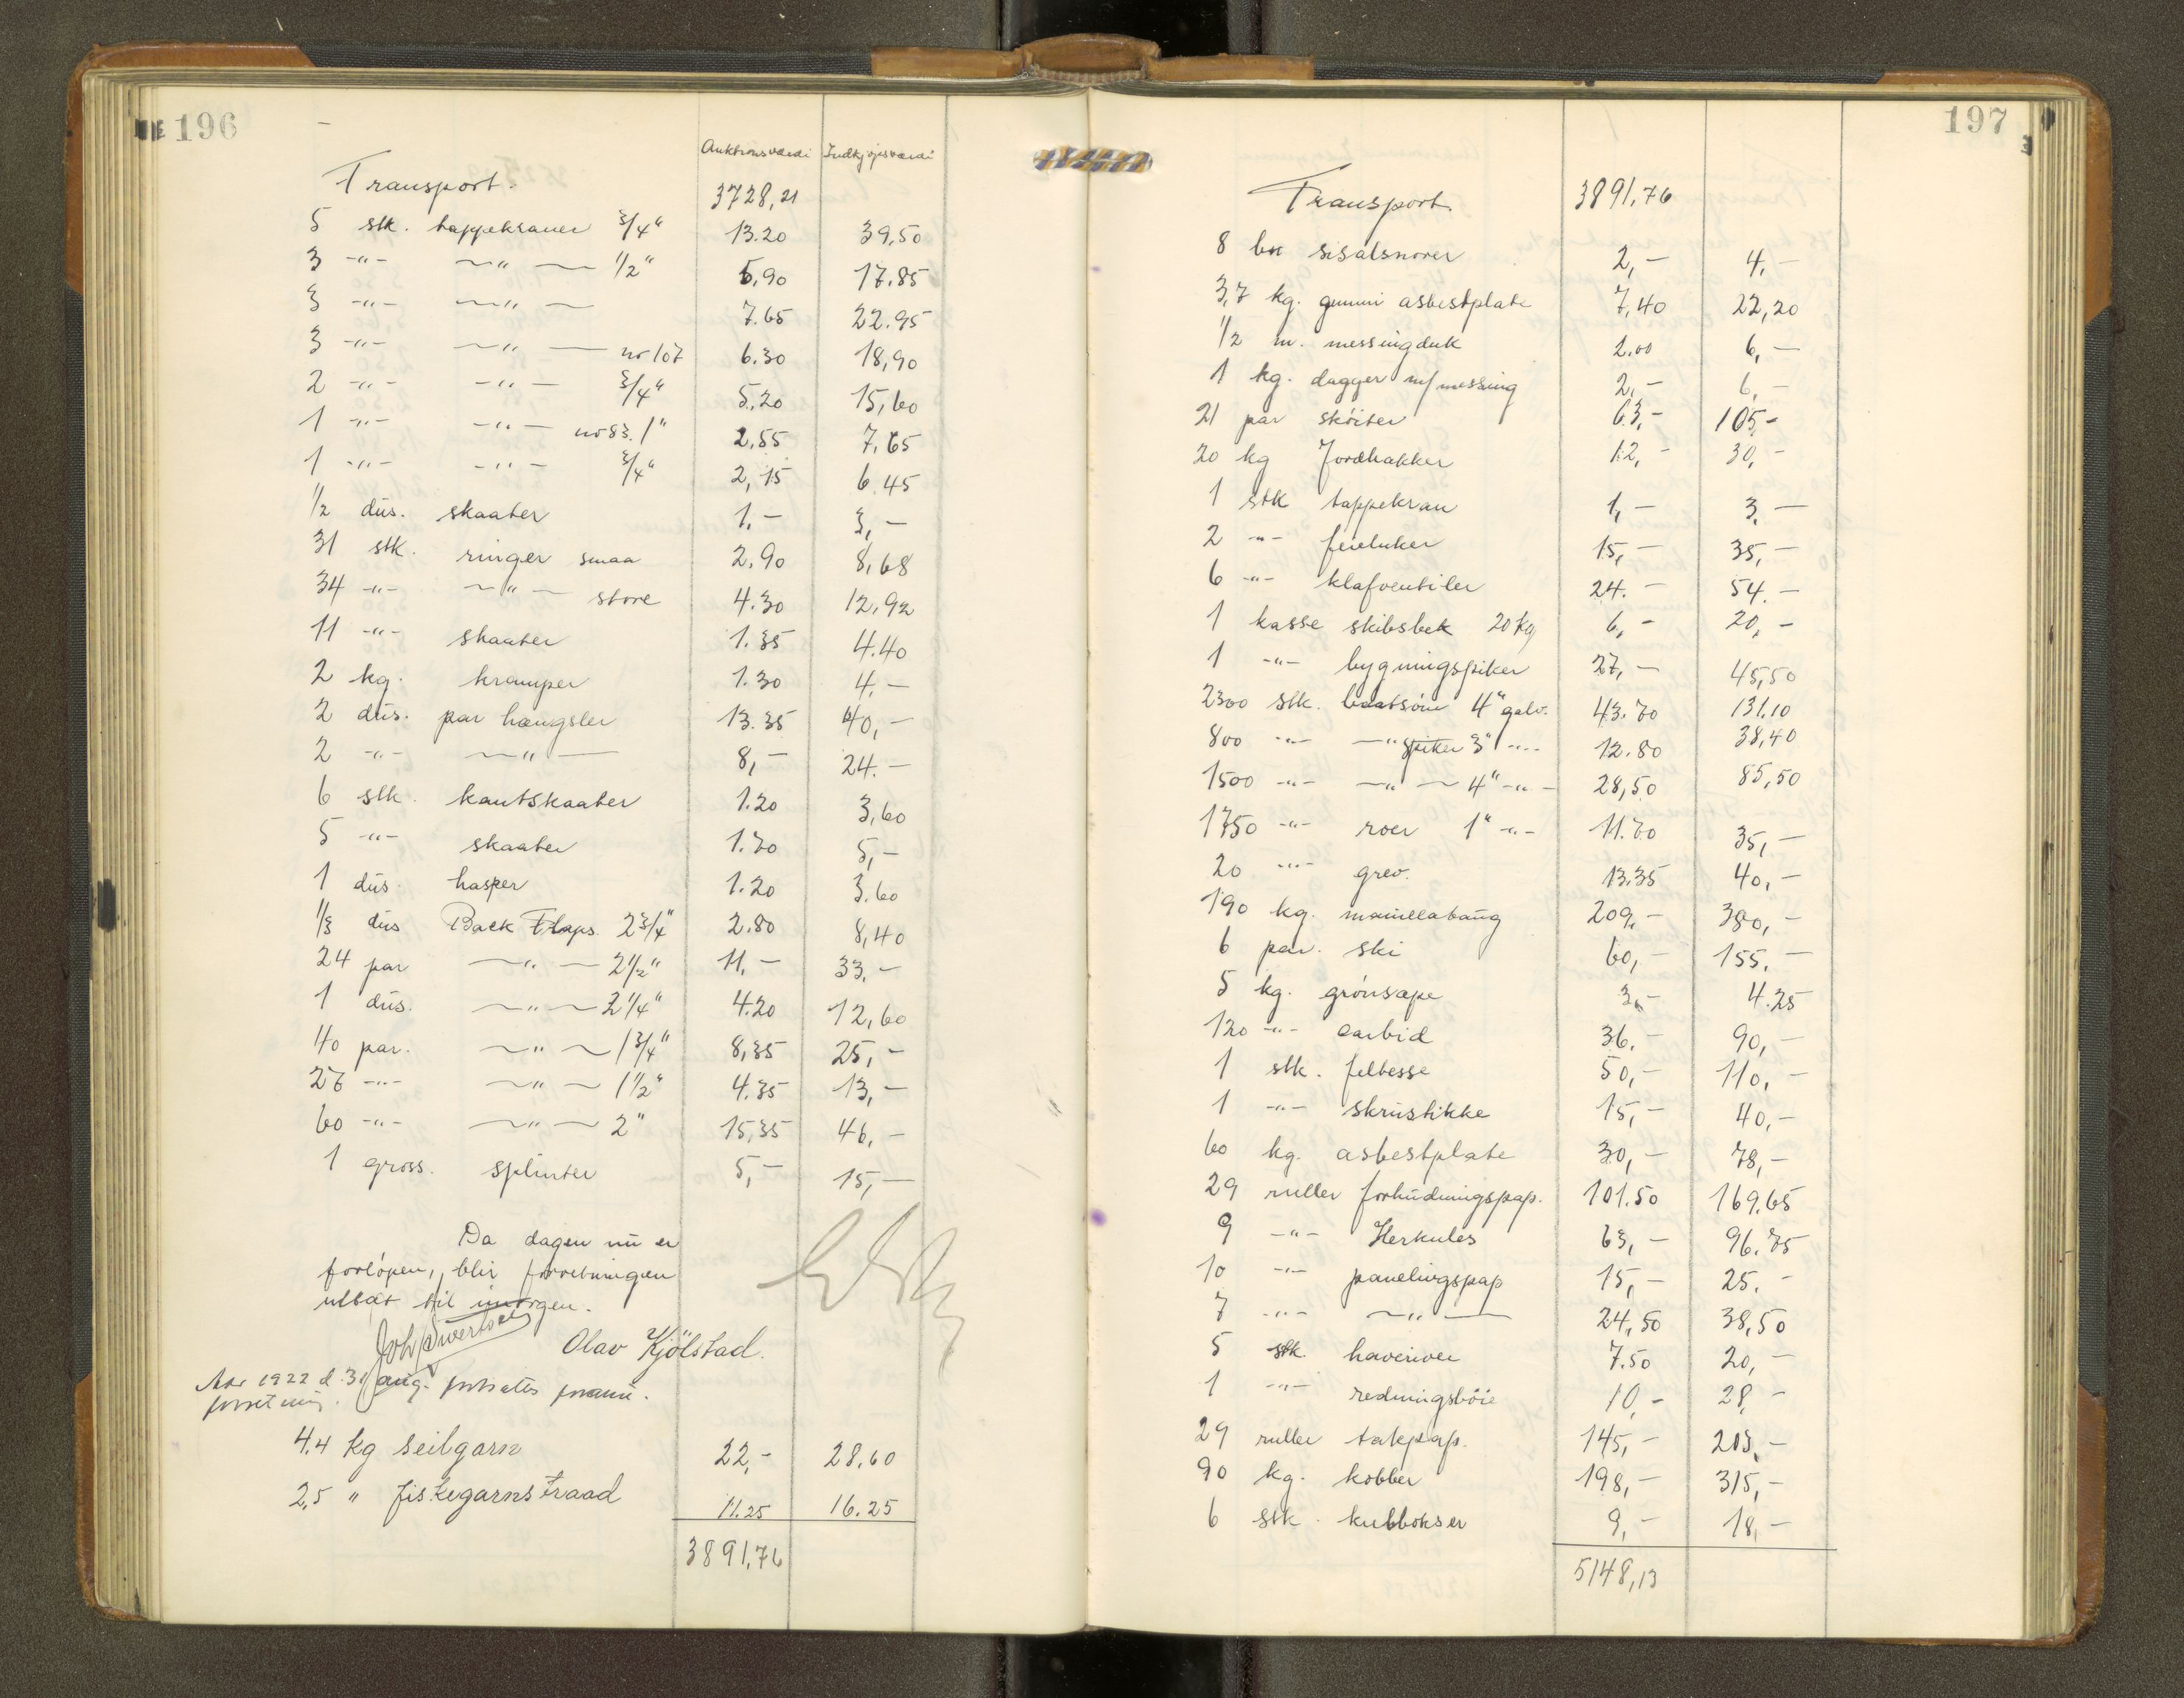 196
Auktionsværdi Indkjøpsværdi
Transport. 3728,21
5 stk. tappekraner 3/4" 13.20 39,50
3 -"- -"- 1/2" 5,90 17.85
3 -"- -"- 7.65 22.95
3 -"- -"- no 107 6.30 18,90
2 -"- -"- 3/4" 5,20 15,60
1 -"- -"- no 83. 1" 2,55 7,65
1 -"- -"- 3/4" 2,15 6.45
1/2 dus. skaater 1,- 3,-
31 stk. ringer smaa 2,90 8,68
34 -"- -"- store 4.30 12,92
11 -"- skaater 1.35 4.40
2 kg. kramper 1.30 4,-
2 dus. par hængsler 13.35 40,-
2 -"- -"- 8,- 24.-
6 stk. kantskaater 1.20 3,60
5 -"- skaater 1.70 5,-
1 dus. hasper 1.20 3.60
1/3 dus Back Flaps. 2 3/4" 2.80 8,40
24 par -"- 2 1/2" 11,- 33,-
1 dus. -"- 2 1/4" 4.20 12,60
40 par. -"- 1 3/4" 8,35 25,-
26 -"- -"- 1 1/2" 4.35 13,-
60 -"- -"- 2" 15,35 46,-
1 gross. splinter 5,- 15,-
Da dagen nu er
forløpen, blir forretningen
utsat til imorgen.
Joh Sivertsen
Olav Kjölstad.
Aar 1922 d. 31 aug. fortsattes
forretning.
4.4 kg seilgarn 22,- 28,60
2,5 " fiskegarnstraad 11.25 16.25
3891,76
197
Transport. 3891,76
8 bn sisalsnorer 2,- 4,-
3,7 kg. gummi asbestplate 7,40 22,20
1/2 m. messingduk 2.00 6,-
1 kg. dagger m/messing 2,- 6,-
21 par skøiter 63,- 105,-
20 kg Jordhakker 12,- 30,-
1 stk tappekran 1,- 3,-
2 -"- feieluker 15,- 35,-
6 -"- klafventiler 24.- 54.-
1 kasse skibsbek 20 kg 6,- 20,-
1 -"- bygningspiker 27,- 45,50
2300 stk. baatsöm 4" galv. 43.70 131.10
800 -"- -"- spiker 3" -"- 12.80 38,40
1500 -"- -"- 4" -"- 28,50 85,50
1750 -"- roer 1" -"- 11.70 35,-
20 -"- grev. 13.35 40,-
190 kg. manillataug 209,- 380,-
6 par. ski 60,- 155,-
5 kg. grønsape 3,- 4.25
120 -"- carbid 36,- 90,-
1 stk. feltesse 50,- 110,-
1 -"- skrustikke 15,- 40,-
60 kg. asbestplate 30,- 78,-
29 ruller forhudningspap. 101.50 169,65
9 -"- Herkules 63,- 96.75
10 -"- panelingspap 15,- 25.-
7 -"- -"- 24,50 38,50
5 stk. haveriver 7.50 20,-
1 -"- redningsbøie 10,- 28,-
29 ruller takpap. 145,- 203,-
90 kg. kobber 198,- 315,-
6 stk. kubbokser 9,- 18,-
5148,13